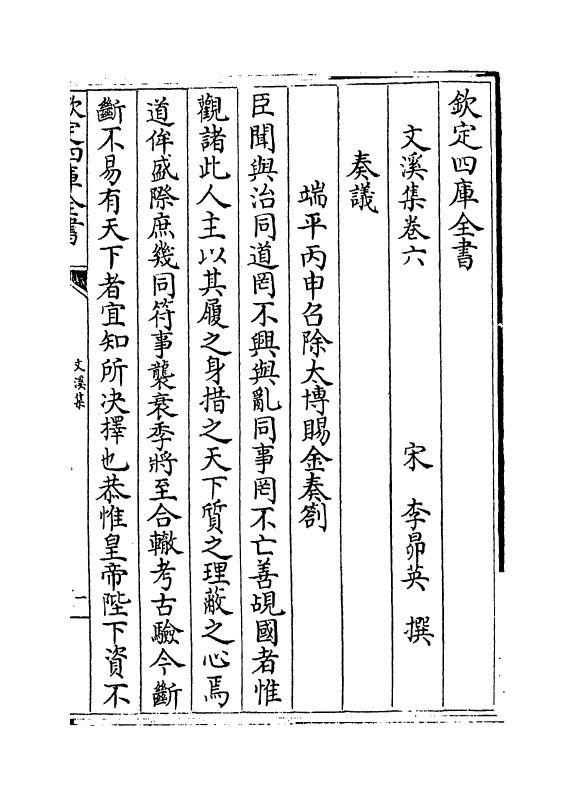 欽定四庫全書
文溪集卷六
宋 李昴英 撰
奏議
端平丙申召除太博賜金奏劄
臣聞與治同道罔不興與亂同事罔不亡善觇國者惟
觀諸此人主以其履之身措之天下質之理蔽之心焉
道侔盛際庶幾同符事襲衰季將至合轍考古驗今斷
斷不易有天下者宜知所决擇也恭惟皇帝陛下資不
欽定四庫全書
文溪集
一